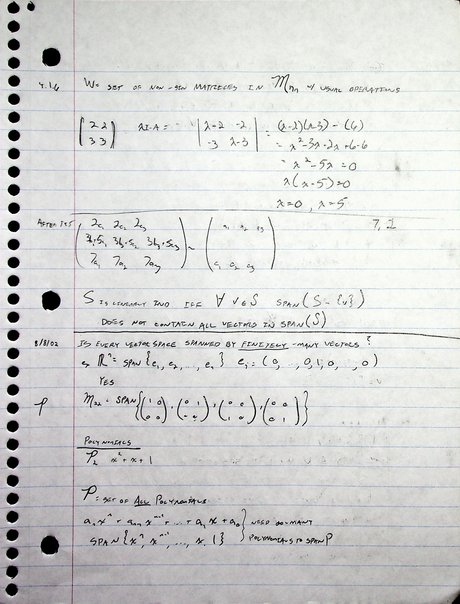 4.1.6 W = SET OF NON-SIN MATRICIES IN Mnn w/ USUAL OPERATIONS
(2 2 / 3 3) λI-A = |λ-2 -2 / -3 λ-3| = (λ-2)(λ-3) - (6)
= λ² - 3λ - 2λ + 6 - 6
= λ² - 5λ = 0
λ(λ-5) = 0
λ = 0, λ = 5
7, 1
2a₁ 2a₂ 2a₃
7c₁ 7c₂ 7c₃
a₁ a₂ a₃
c₁ c₂ c₃
S IS LINEARLY IND IFF ∀ v∈S SPAN(S - {v})
DOES NOT CONTAIN ALL VECTORS IN SPAN(S)
8/8/02 IS EVERY VECTOR SPACE SPANNED BY FINITELY-MANY VECTORS?
ℝⁿ = SPAN {e₁, e₂, ..., eₙ} eᵢ = (0, ..., 0, 1, 0, ..., 0)
YES
P M₂₂ = SPAN{(1 0 / 0 0), (0 1 / 0 0), (0 0 / 1 0), (0 0 / 0 1)}
POLYNOMIALS
P₂ x² + x + 1
P = SET OF ALL POLYNOMIALS
aₙxⁿ + aₙ₋₁xⁿ⁻¹ + ... + a₁x + a₀ } NEED ∞-MANY
SPAN{xⁿ, xⁿ⁻¹, ..., x, 1} POLYNOMIALS TO SPAN P